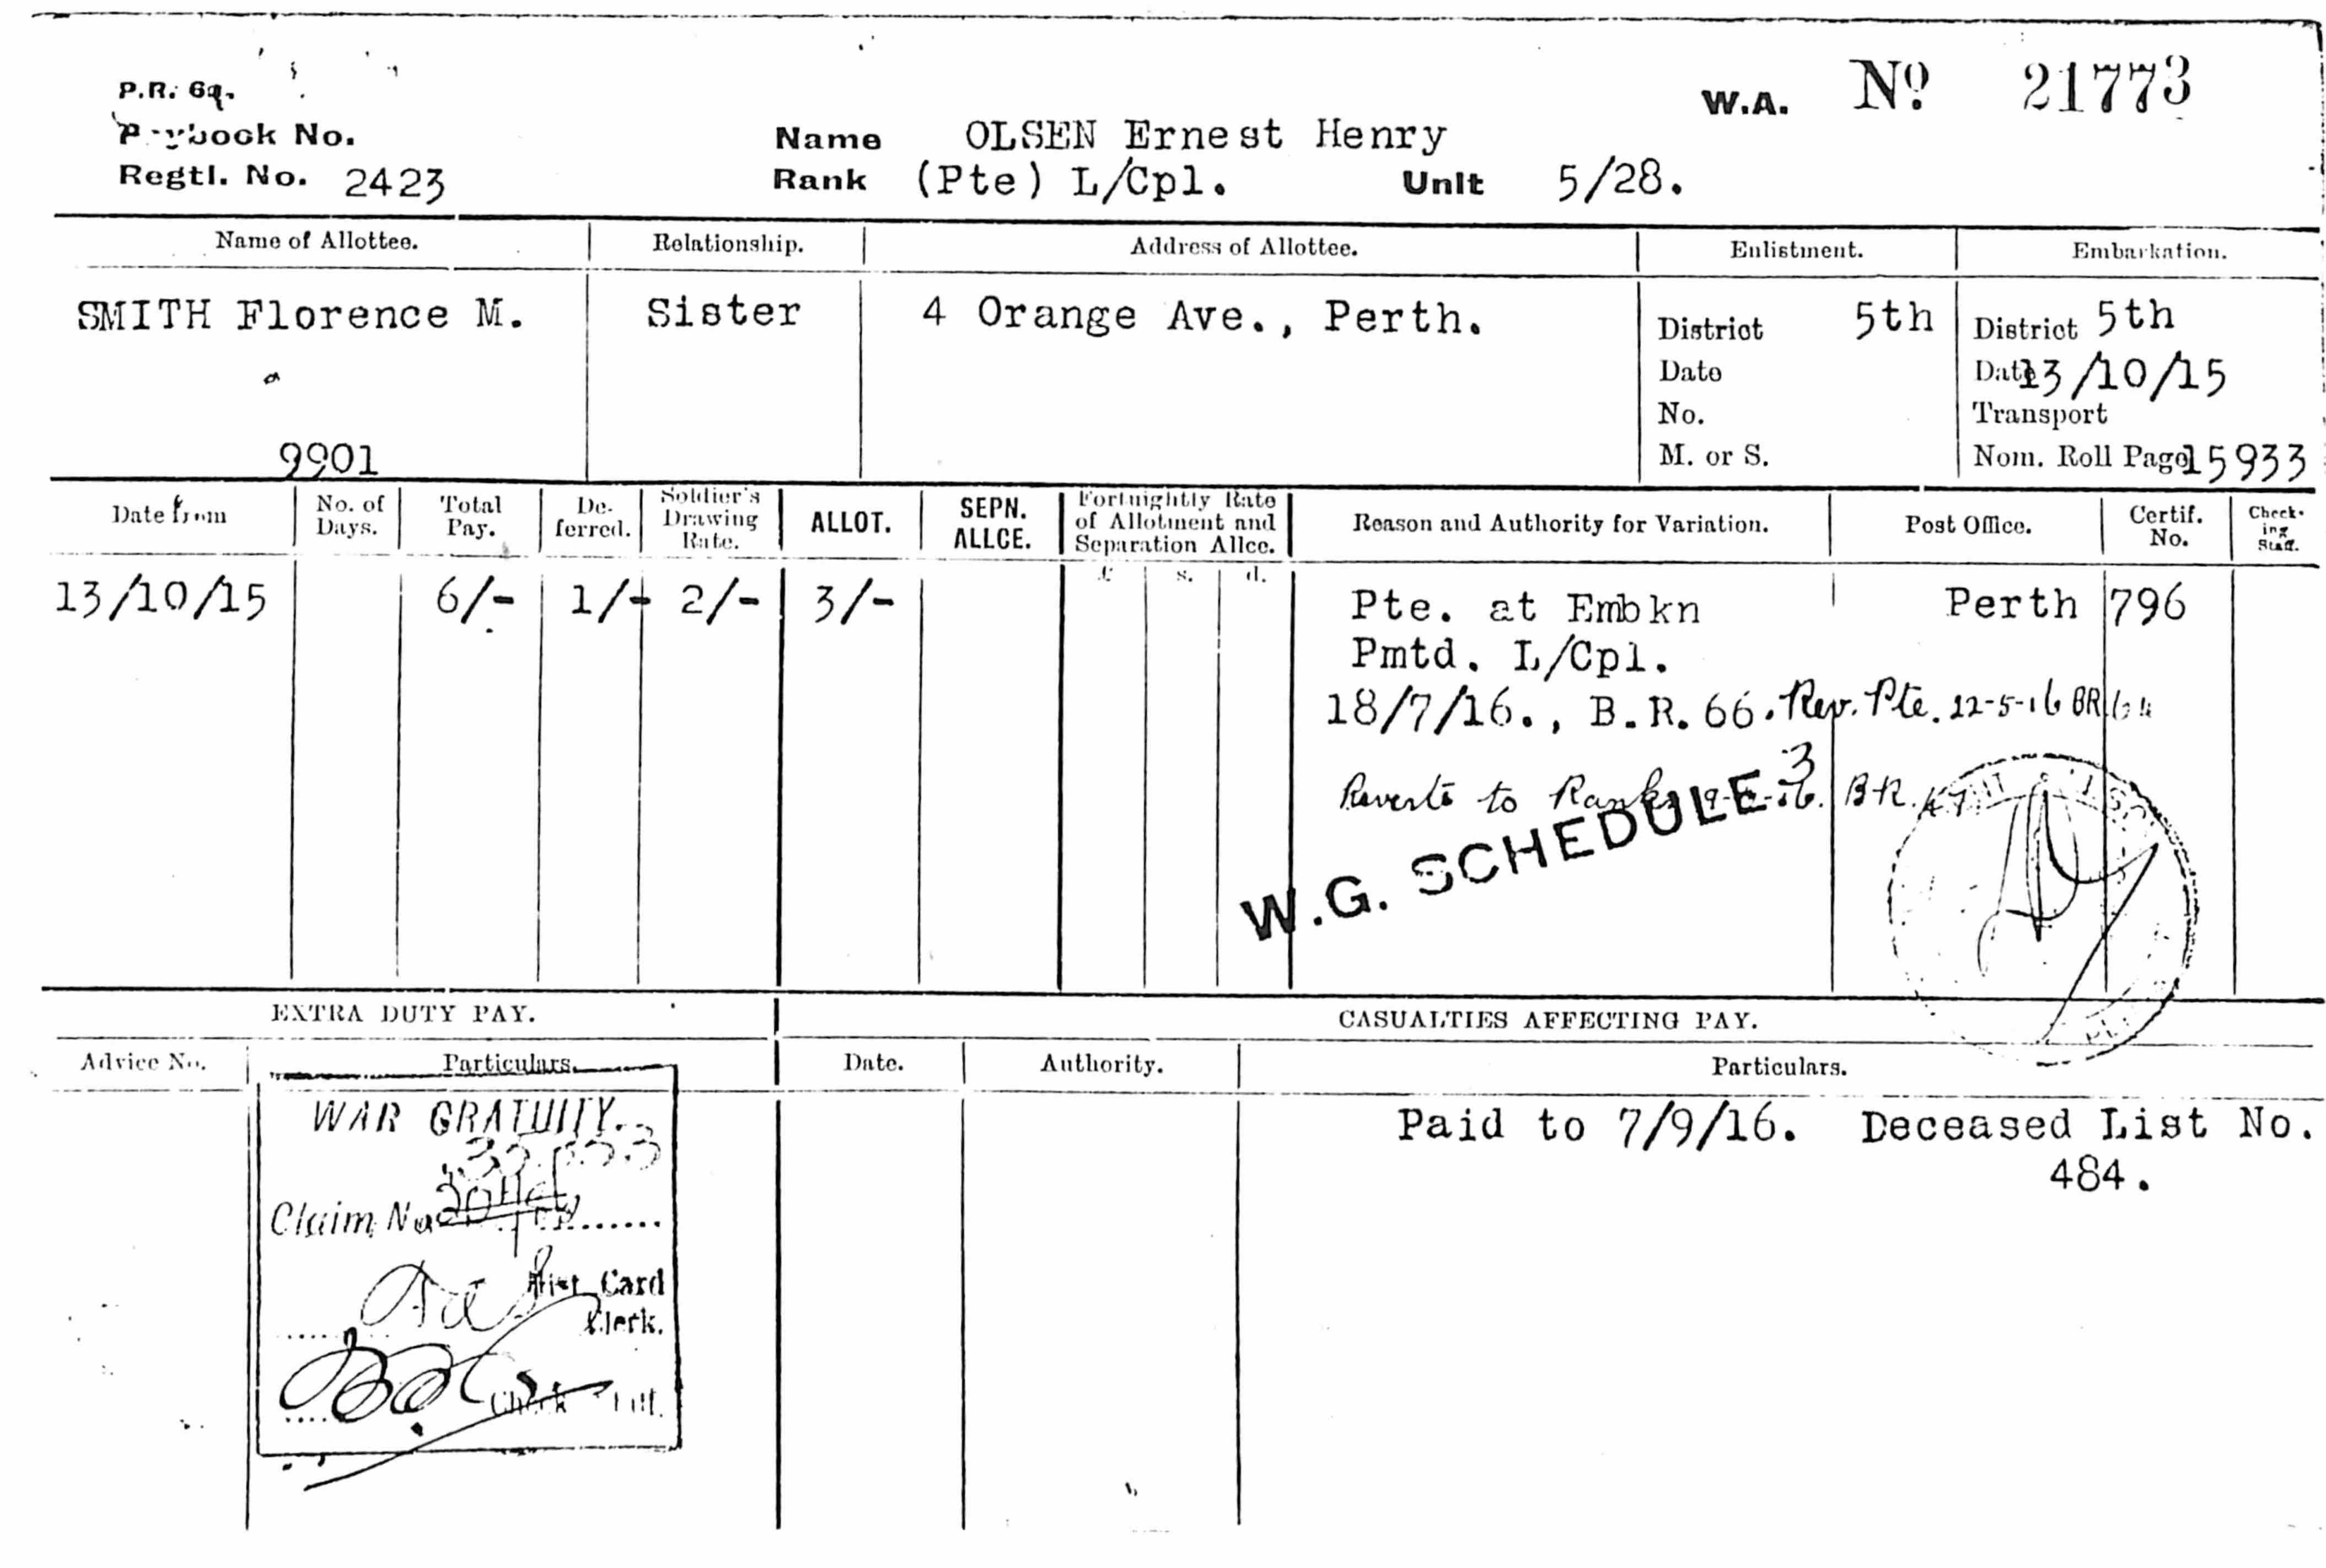 P.R. 69.
W.A. Nº 21773
Paybook No.
Name OLSEN Ernest Henry
Regtl. No. 2423
Rank (Pte) L/Cpl. Unit 5/28.
Name of Allottee. Relationship. Address of Allottee. Enlistment. Embarkation.
SMITH Florence M. Sister 4 Orange Ave., Perth. District 5th District 5th
Date Date 13/10/15
No. Transport
9901 M. or S. Nom. Roll Page 15933
Date from No. of Days. Total Pay. De-ferred. Soldier's Drawing Rate. ALLOT. SEPN. ALLCE. Fortnightly Rate of Allotment and Separation Allce. Reason and Authority for Variation. Post Office. Certif. No. Check-ing Staff.
£ s. d.
13/10/15 6/- 1/- 2/- 3/- Pte. at Embkn Perth 796
Pmtd. L/Cpl.
18/7/16., B.R. 66. Rev. Pte. 22-5-16 BR
Reverts to Ranks B.R.
W.G. SCHEDULE 3
EXTRA DUTY PAY. CASUALTIES AFFECTING PAY.
Advice No. Particulars. Date. Authority. Particulars.
WAR GRATUITY.
Claim No
Hist Card
Clerk.
Check
Paid to 7/9/16. Deceased List No.
484.